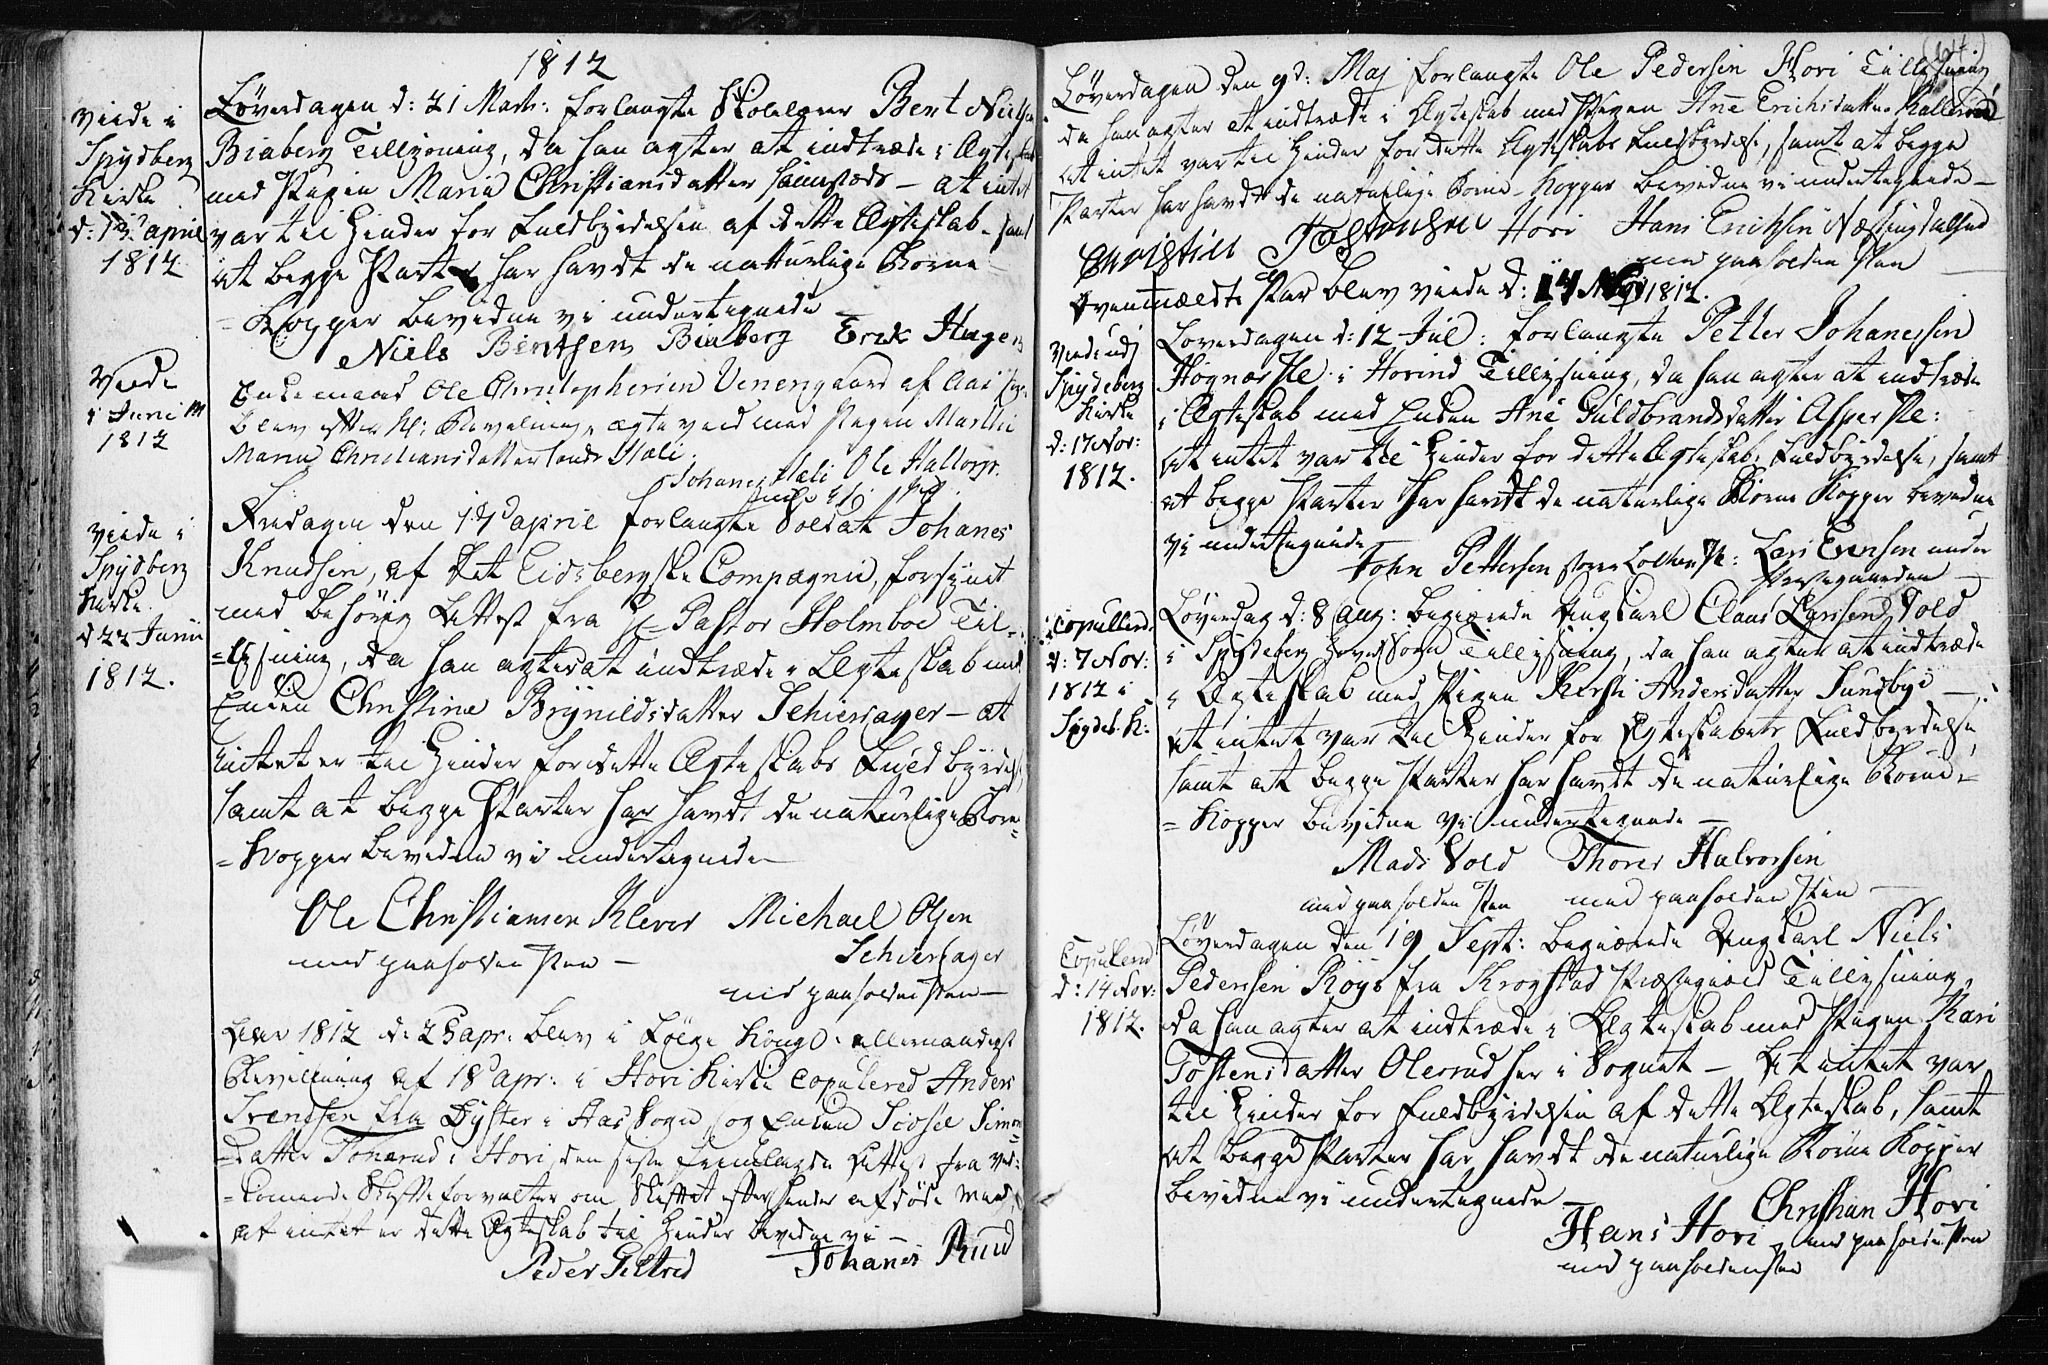 1812
Viede i
Spydberg
Kirke
d: 13 april
1812
Løverdagen d: 21 Marts: forlangte Skolelærer Bent Nielsen
Biaberg Tillysning, da han agter at indtræde i Ægteskab
med Pigen Maria Christiansdatter sammestæds – at intet
var til Hinder for Fuldbyrdelsen af dette Ægteskab samt
at begge Parter har havdt de naturlige Børne
= Kopper bevidne vi undertegnede
Niels Bentsen Biaberg Erik Hagen
Viede
i Juni
1812
Enkemand Ole Christophersen Venengaard af Aas
blev efter Bevilning ægteviet med Pigen Marthe
Maria Christiansdatter Hali.
Johannes Hali Ole Halvors.
Viede i
Spydberg
Kirke
d 22 Junii
1812.
Fredagen den 17 april forlangte Soldat Johanes
Knudsen, af det Eidsbergske Compagnie, forsynet
med behørig Attest fra Hr Pastor Holmboe Til-
=lysning, da han agter at indtræde i Ægteskab med
Enken Christine Brynildsdatter Schieszager – at
intet er til Hinder for dette Ægteskabs Fuldbyrdelse
samt at begge Parter har havdt de naturlige Børne
= Kopper bevidne vi undertegnede
Ole Christiansen Klever Michael Olsen
med paaholden Pen – Schieszager
med paaholden Pen –
Aar 1812 d: 25 apr. blev i Følge Kongl. allernaadigst
Bevillning af 18 apr: i Hovi Kirke Copulered Anders
Svendsen fra Dyster i Aas Sogn, og Enken Sidsel Simens
=datter Tomerud i Hovi, den sidste fremlagde Attest fra ved-
= kommende Skifteforvalter om Skiftet efter hendes afdøde Mand
at intet er dette Ægteskab til Hinder bevidne vi –
Peder Siltrud Johanes Ruud
Løverdagen den 9d: Maj forlangte Ole Pedersen Hovi Tillysning
da han agter at indtræde i Ægteskab med Pigen Ane Erichsdatter Kallerud
at intet var til Hinder for dette Ægteskabs Fuldbyrdelse, samt at begge
Parter har havdt de naturlige Børne-Kopper bevidne vi undertegnede –
Christian Tostensen Hovi Hans Erichsen Næssingdalsrud
med paaholden Pen
Ovenmældte Par blev viede d: 14 Nov 1812.
Viede udj
Spydeberg
Kirke
d: 17 Nov:
1812.
Løverdagen d: 12 Jul: forlangte Petter Johanessen
Hognær Pl: i Hovind Tillysning, da han agter at indtræde
i Ægteskab med Enken Ane Guldbrandsdatter Asper Pl:
At intet var til Hinder for dette Ægteskabs Fuldbyrdelse, samt
at begge Parter har havdt de naturlige Børne Kopper bevidne
vi undertegnede
John Pettersen Pl: Lars Evensen under
Præstegaarden –
Copulered
d: 7 Nov:
1812 i
Spydeb. K:
Løverdag d: 8 aug: begierede Ungkarl Claus Larsen Vold
i Spydeberg Hoved Sogn Tillysning, da han agter at indtræde
i Ægteskab med Pigen Kirsti Andersdatter Sundbye –
At intet var til Hinder for Ægteskabets Fuldbyrdelse,
samt at begge Parter har havdt de naturlige Børne-
= Kopper bevidne vi undertegnede –
Mads Vold Thores Halvorsen
med paaholden Pen med paaholden Pen –
Copulered
d: 14 Nov:
1812.
Løverdagen den 19 Sept: begierede Ungkarl Niels
Pedersen Røys fra Krogstad Præstegield Tillysning,
da han agter at indtræde i Ægteskab med Pigen Kari
Tostensdatter Olerud her i Sognet – At intet var
til Hinder for Fuldbyrdelsen af dette Ægteskab, samt
at begge Parter har havdt de naturlige Børne Kopper
bevidne vi undertegnede –
Christian Hovi
Hans Hovi med paaholden Pen
med paaholden Pen